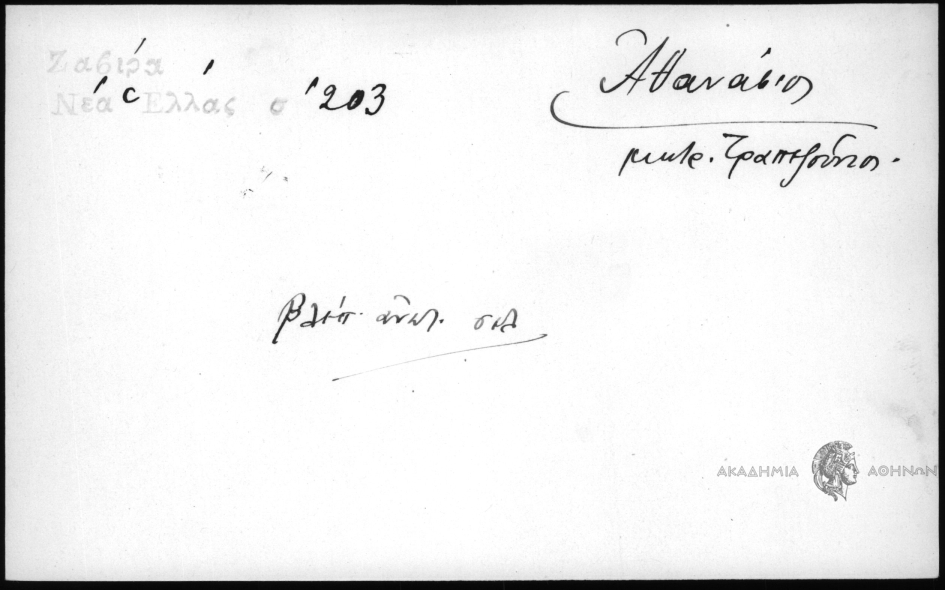 Ζαβίρα
Νέα Ἑλλάς σ 203
Ἀθανάσιος
μητρ. Τραπεζοῦντος.
βλέπ. ἀνωτ. σελ
ΑΚΑΔΗΜΙΑ ΑΘΗΝΩΝ